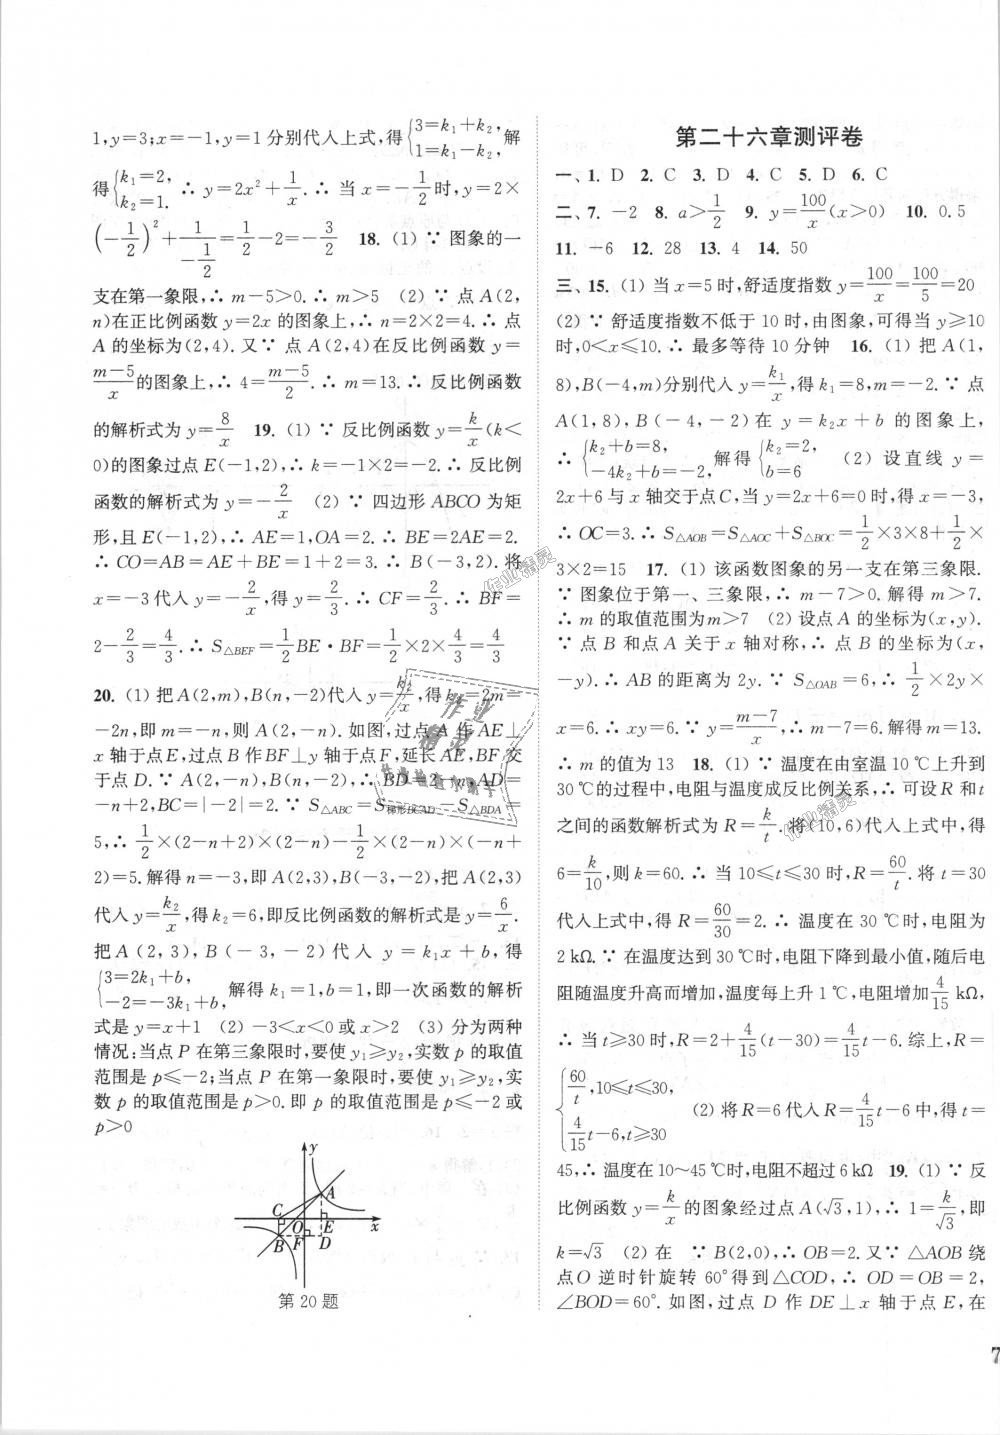 1,y=3;x=-1,y=1分别代入上式,得{3=k₁+k₂, 1=k₁-k₂,解
得{k₁=2, k₂=1. ∴ y=2x²+1/x.∴ 当 x=-1/2时,y=2×
(-1/2)²+1/(-1/2)=1/2-2=-3/2 18. (1) ∵ 图象的一
支在第一象限,∴ m-5>0.∴ m>5 (2) ∵ 点 A(2,
n)在正比例函数 y=2x 的图象上,∴ n=2×2=4.∴ 点
A 的坐标为(2,4).又∵ 点A(2,4)在反比例函数 y=
(m-5)/x的图象上,∴ 4=(m-5)/2.∴ m=13.∴ 反比例函数
的解析式为 y=8/x 19. (1) ∵ 反比例函数 y=k/x(k<
0)的图象过点 E(-1,2),∴ k=-1×2=-2.∴ 反比例
函数的解析式为 y=-2/x (2) ∵ 四边形 ABCO 为矩
形,且 E(-1,2),∴ AE=1,OA=2.∴ BE=2AE=2.
∴ CO=AB=AE+BE=1+2=3.∴ B(-3,2).将
x=-3代入 y=-2/x,得 y=2/3.∴ CF=2/3.∴ BF=
2-2/3=4/3.∴ S△BEF=1/2BE·BF=1/2×2×4/3=4/3
20. (1) 把 A(2,m),B(n,-2)代入 y=k₂/x,得 k₂=2m=
-2n,即 m=-n,则 A(2,-n).如图,过点 A 作 AE⊥
x 轴于点 E,过点 B 作 BF⊥y 轴于点F,延长 AE,BF 交
于点 D.∵ A(2,-n),B(n,-2),∴ BD=2-n,AD=
-n+2,BC=|-2|=2.∵ S△ABC=S梯形BCAD-S△BDA=
5,∴ 1/2×(2-n+2)×(2-n)-1/2×(2-n)×(-n+
2)=5.解得 n=-3,即 A(2,3),B(-3,-2).把 A(2,3)
代入 y=k₂/x,得 k₂=6,即反比例函数的解析式是 y=6/x.
把 A(2,3),B(-3,-2) 代入 y=k₁x+b,得
{3=2k₁+b, -2=-3k₁+b, 解得 k₁=1,b=1,即一次函数的解析
式是 y=x+1 (2) -3<x<0 或 x>2 (3) 分为两种
情况:当点 P 在第三象限时,要使 y₁≥y₂,实数 p 的取值
范围是 p≤-2;当点 P 在第一象限时,要使 y₁≥y₂,实
数 p 的取值范围是 p>0.即 p 的取值范围是 p≤-2 或
p>0
y
A
C
O
E
x
B
F
D
第 20 题
第二十六章测评卷
一、1. D 2. C 3. D 4. C 5. D 6. C
二、7. -2 8. a>1/2 9. y=100/x(x>0) 10. 0.5
11. -6 12. 28 13. 4 14. 50
三、15. (1) 当 x=5 时,舒适度指数 y=100/x=100/5=20
(2) ∵ 舒适度指数不低于 10 时,由图象,可得当 y≥10
时,0<x≤10.∴ 最多等待 10 分钟 16. (1) 把 A(1,
8),B(-4,m)分别代入 y=k₁/x,得 k₁=8,m=-2.∵ 点
A(1,8),B(-4,-2)在 y=k₂x+b 的图象上,
∴ {k₂+b=8, -4k₂+b=-2, 解得{k₂=2, b=6 (2) 设直线 y=
2x+6 与 x 轴交于点 C,当 y=2x+6=0 时,得 x=-3,
∴ OC=3.∴ S△AOB=S△AOC+S△BOC=1/2×3×8+1/2×
3×2=15 17. (1) 该函数图象的另一支在第三象限.
∵ 图象位于第一、三象限,∴ m-7>0.解得 m>7.
∴ m 的取值范围为m>7 (2) 设点 A 的坐标为(x,y).
∵ 点 B 和点 A 关于 x 轴对称,∴ 点 B 的坐标为(x,
-y).∴ AB 的距离为 2y.∵ S△OAB=6,∴ 1/2×2y×
x=6.∴ xy=6.∵ y=(m-7)/x,∴ m-7=6.解得 m=13.
∴ m 的值为 13 18. (1) ∵ 温度在由室温 10 ℃上升到
30 ℃的过程中,电阻与温度成反比例关系,∴ 可设 R 和 t
之间的函数解析式为 R=k/t.将(10,6)代入上式中,得
6=k/10,则 k=60.∴ 当 10≤t≤30 时,R=60/t.将 t=30
代入上式中,得 R=60/30=2.∴ 温度在 30 ℃时,电阻为
2 kΩ.∵ 在温度达到 30 ℃时,电阻下降到最小值,随后电
阻随温度升高而增加,温度每上升 1 ℃,电阻增加4/15 kΩ,
∴ 当 t≥30 时,R=2+4/15(t-30)=4/15t-6.综上,R=
{60/t,10≤t≤30, 4/15t-6,t≥30 (2) 将 R=6 代入 R=4/15t-6 中,得 t=
45,∴ 温度在 10~45 ℃时,电阻不超过 6 kΩ 19. (1) ∵ 反
比例函数 y=k/x的图象经过点 A(√3,1),∴ 1=k/√3,即
k=√3 (2) 在 ∵ B(2,0),∴ OB=2.又∵ △AOB 绕
点O 逆时针旋转 60°得到△COD,∴ OD=OB=2,
∠BOD=60°.如图,过点 D 作 DE⊥x 轴于点 E,在
7
作业精灵
作业精灵
作业精灵